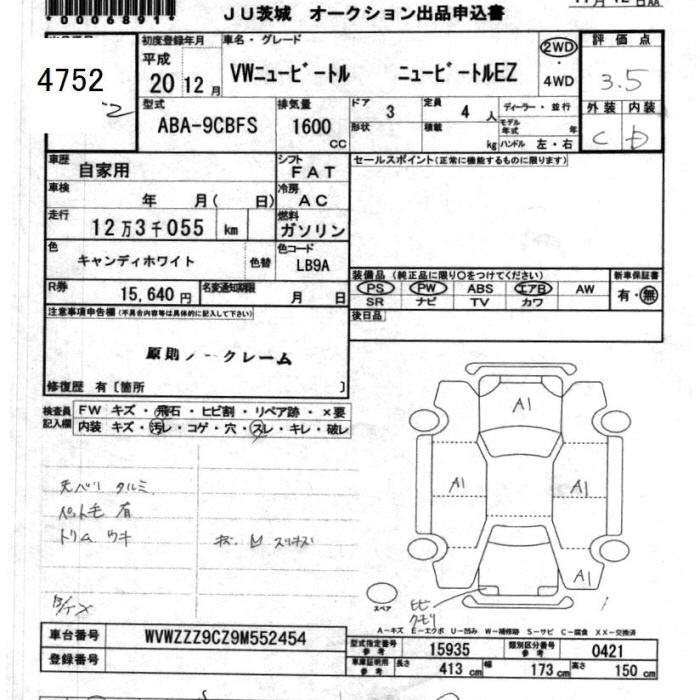 *0006891*
JU茨城 オークション出品申込書
4752
初度登録年月 車名・グレード
平成 20 12月
VWニュービートル ニュービートルEZ
2WD・4WD
評価点
3.5
外装 内装
C D
型式 排気量 ドア 3 定員 4人 ディーラー・並行
ABA-9CBFS 1600 CC 形状 積載 kg モデル年式 年 ハンドル 左・右
車歴 自家用 シフト FAT
セールスポイント(正常に機能するものに限ります)
車検 年 月( 日) 冷房 AC
走行 12万3千055 km 燃料 ガソリン
色 キャンディホワイト 色替 色コード LB9A
装備品(純正品に限り○をつけてください) 新車保証書
PS PW ABS エアB AW 有・無
SR ナビ TV カワ
R券 15,640円 名変通知期限 月 日
後日品
注意事項申告欄(不具合内容等は具体的に記入して下さい)
原則ノークレーム
修復歴 有〔箇所 〕
検査員記入欄
FW キズ・飛石・ヒビ割・リペア跡・×要
内装 キズ・汚レ・コゲ・穴・スレ・キレ・破レ
天バリ タルミ
ペット毛 有
トリム ウキ
A1
A1
A1
A1
スペア
クモリ
A-キズ E-エクボ U-凹み W-補修跡 S-サビ C-腐食 XX-交換済
車台番号 WVWZZZ9CZ9M552454
型式指定番号 参考 15935 類別区分番号 参考 0421
登録番号
車庫証明用 参考 長さ 413cm 幅 173cm 高さ 150cm